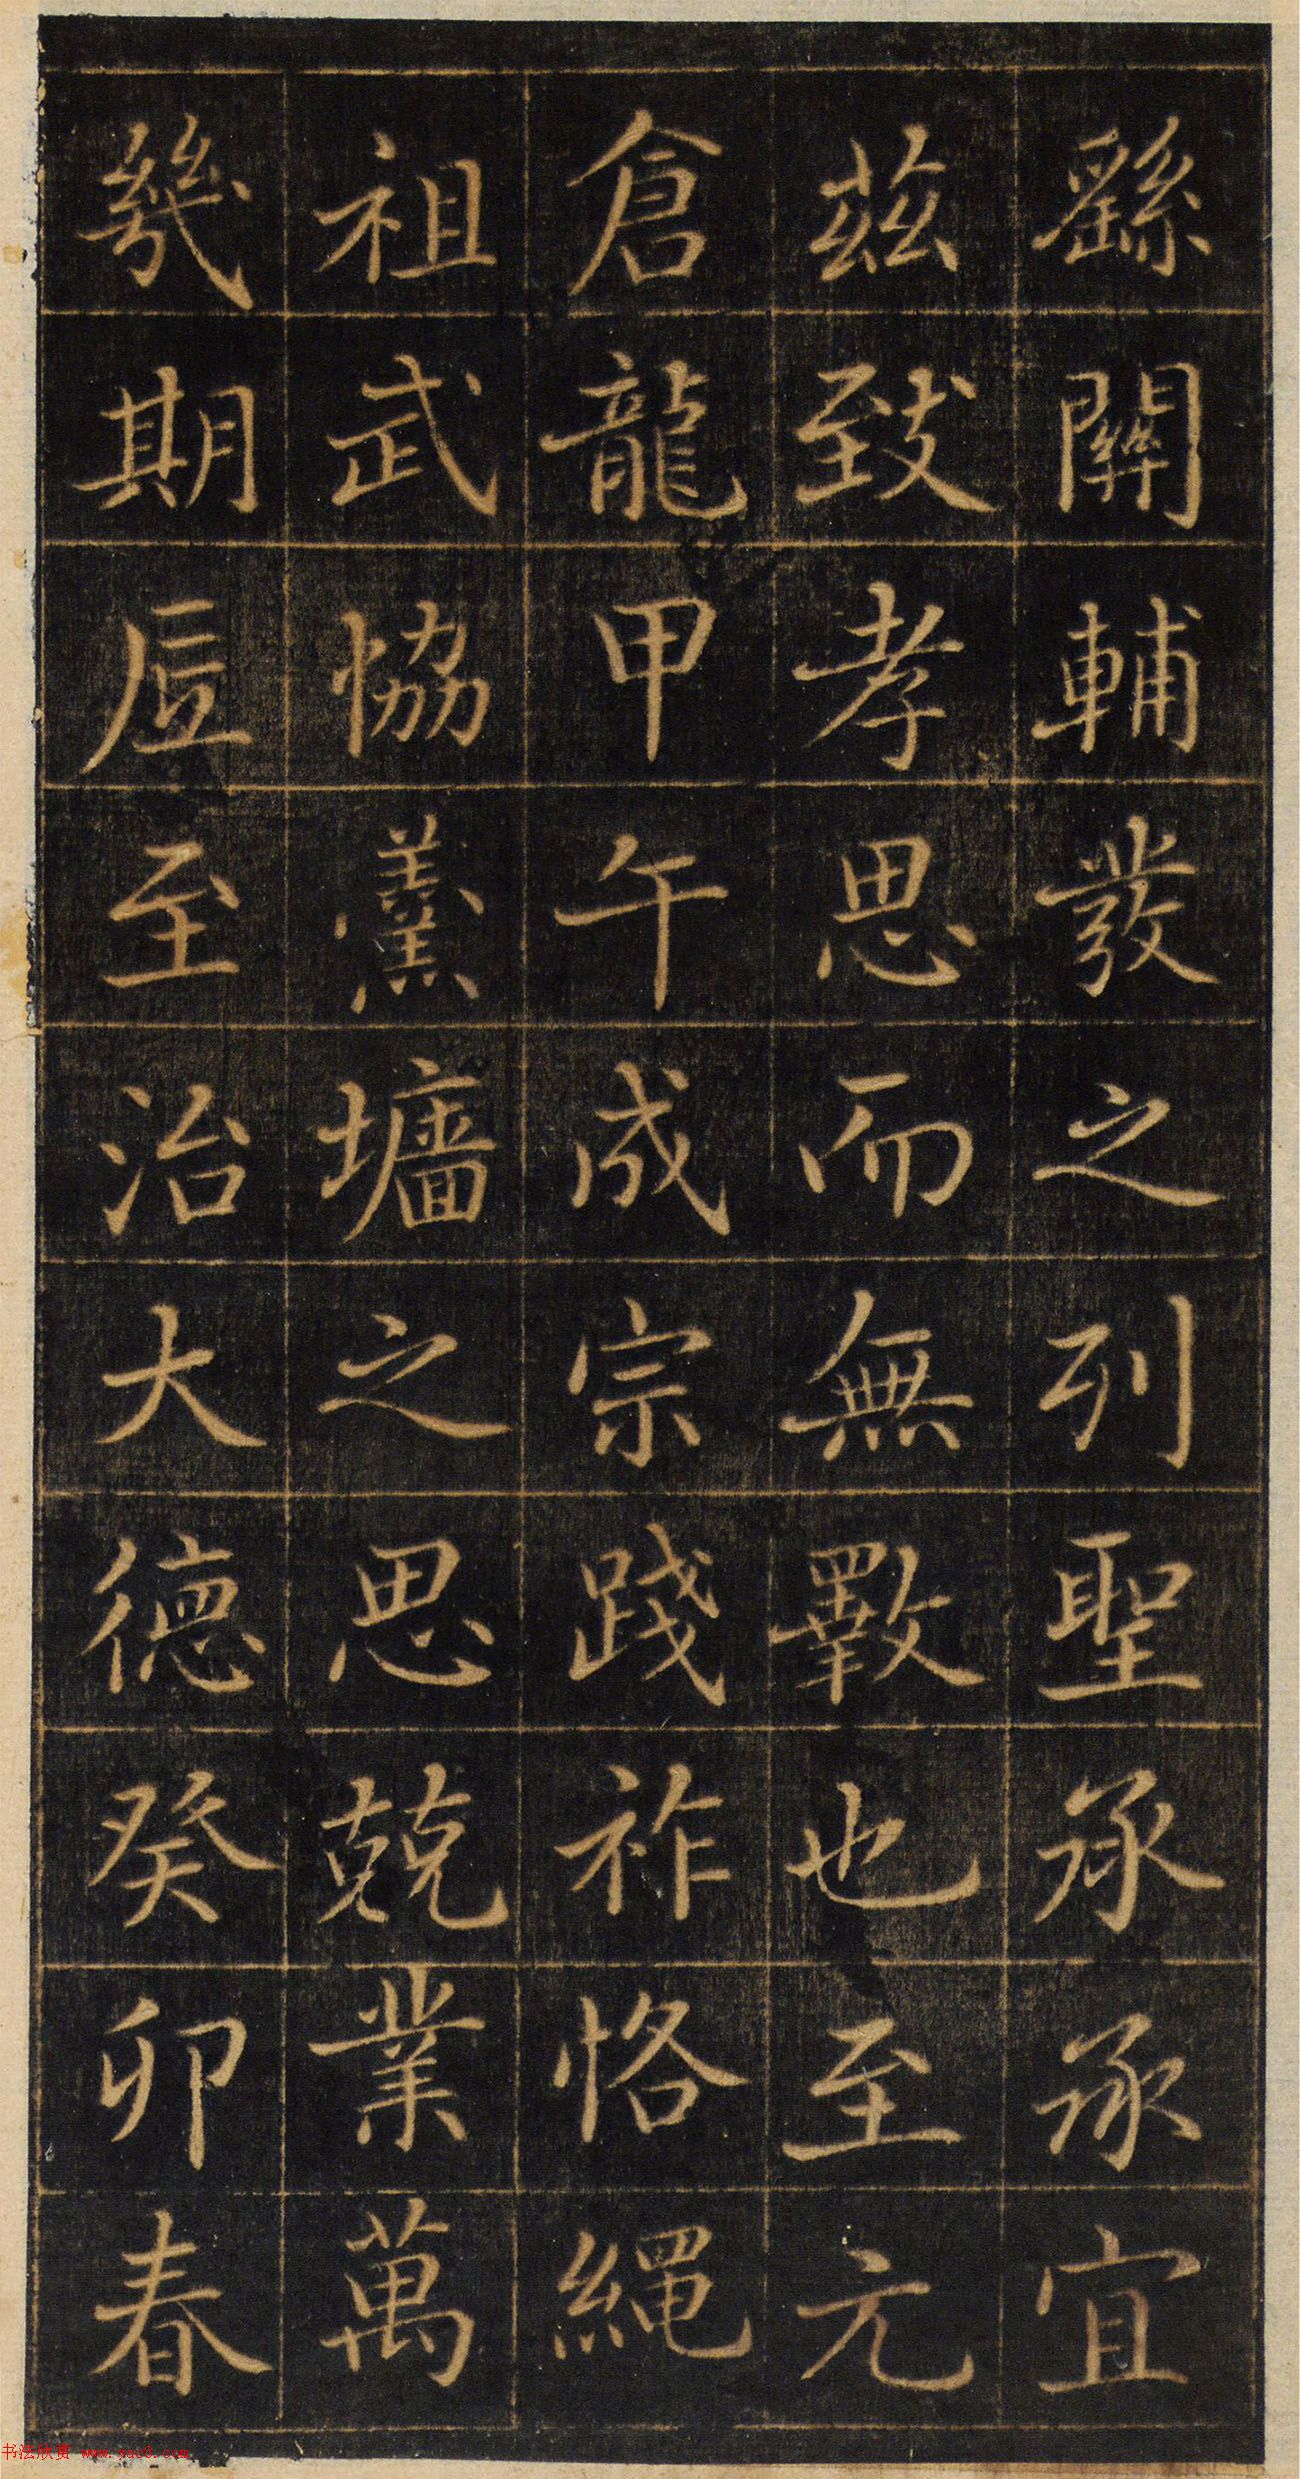 繇關輔發之列聖承承宜
茲致孝思而無斁也至元
倉龍甲午成宗踐祚恪繩
祖武恊羹墻之思兢業萬
幾期底至治大德癸卯春
书法欣赏 www.yac8.com